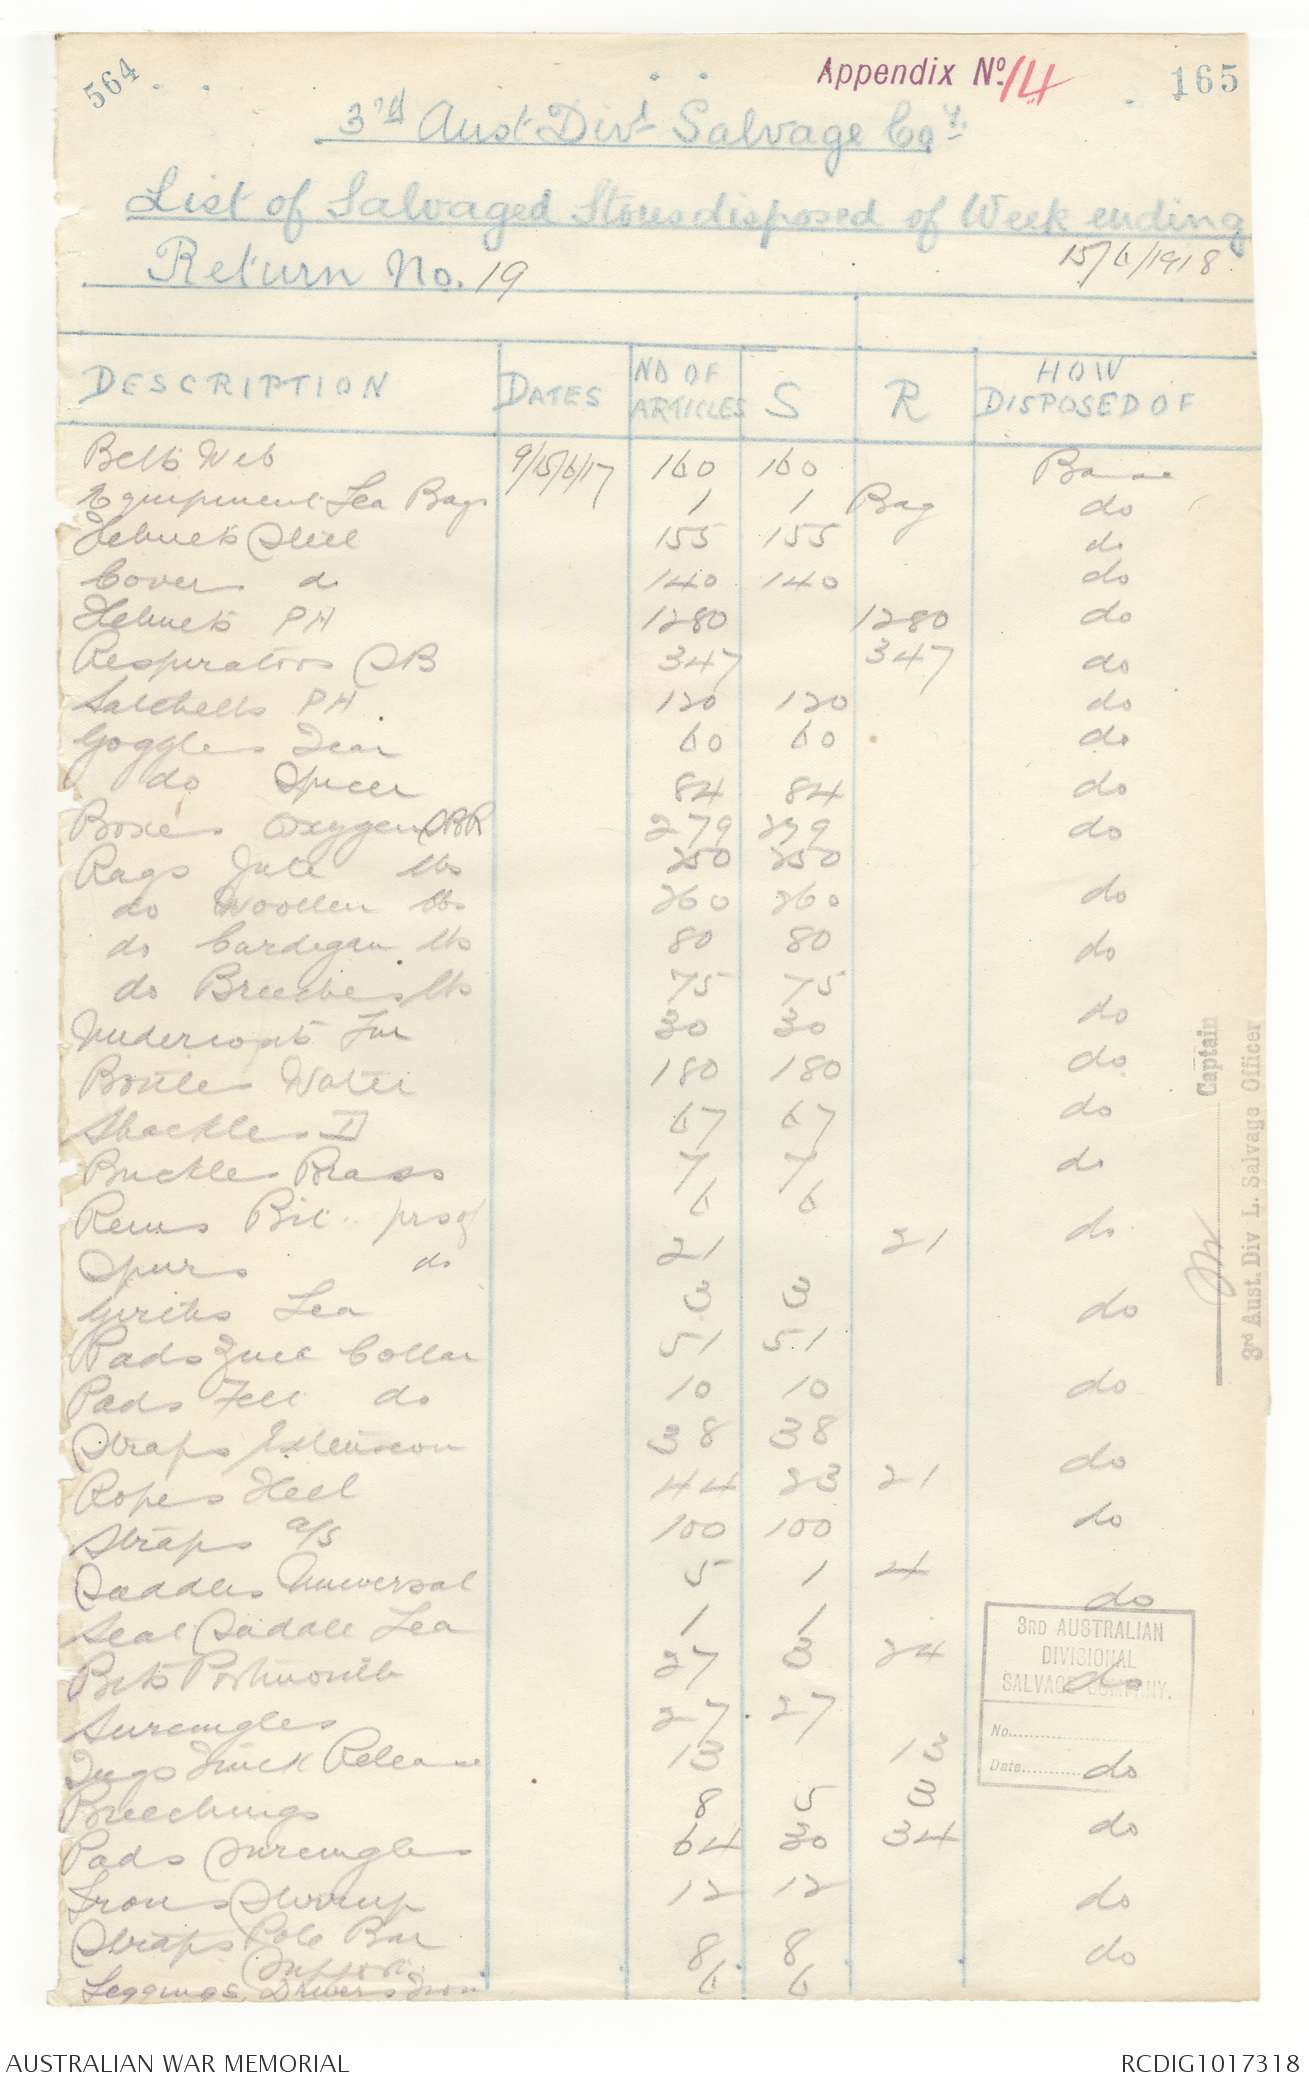 564
Appendix No. 14
165
3rd Aust Divl Salvage Coy.
List of Salvaged Stores disposed of Week ending
Return No. 19 15/6/1918
DESCRIPTION DATES NO OF ARTICLES S R HOW DISPOSED OF
Belts Web 9/15/6/17 160 160 Base
Equipment Lea Bags 1 1 Bag do
Helmets Steel 155 155 do
Covers do 140 140 do
Helmets PH 1280 1280 do
Respirators SB 347 347 do
Satchells PH 120 120 do
Goggles Tear 60 60 do
do Spicer 84 84 do
Boxes Oxygen SBR 279 279 do
Rags Jute lbs 250 250
do Woollen lbs 260 260 do
do Cardigan lbs 80 80 do
do Breeches lbs 75 75
Undercoats Fur 30 30 do
Bottles Water 180 180 do
Shackles D 67 67 do
Buckles Brass 7 7 do
Reins Bit .. prs of 6 6
Spurs do 21 21 do
Girths Lea 3 3 do
Pads Zinc Collar 51 51
Pads Felt do 10 10 do
Straps Extension 38 38
Ropes Heel 44 23 21 do
Straps a/s 100 100 do
Saddles Universal 5 1 4
Seat Saddle Lea 1 1 do
Bits Portmouth 27 3 24 do
Surcingles 27 27
Tugs Quick Release 13 13 do
Breechings 8 5 3
Pads Surcingles 64 30 34 do
Irons Stirrup 12 12 do
Straps Pole Bar Support 8 8 do
Leggings Drivers Iron 6 6
Captain
3rd Aust. Div L. Salvage Officer
3RD AUSTRALIAN
DIVISIONAL
SALVAGE COMPANY.
No..................
Date............
AUSTRALIAN WAR MEMORIAL
RCDIG1017318